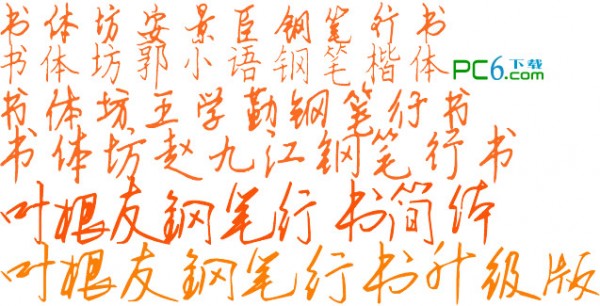 书体坊安景臣钢笔行书
书体坊郭小语钢笔楷体
PC6下载
.com
书体坊王学勤钢笔行书
书体坊赵九江钢笔行书
叶根友钢笔行书简体
叶根友钢笔行书升级版